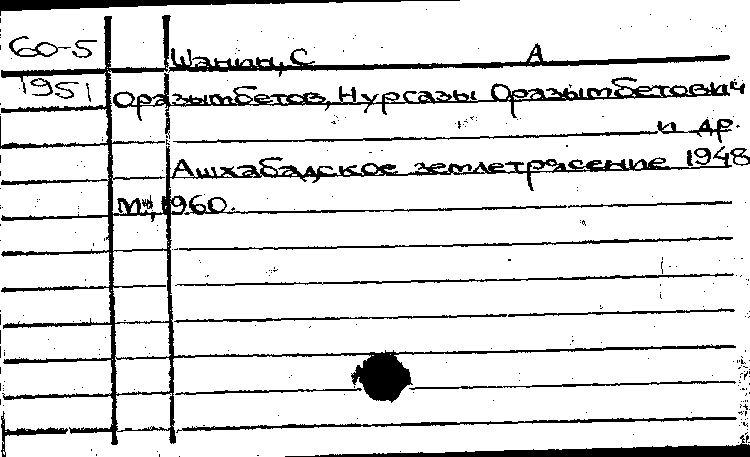 60-5 Шанин, С А
1951 Оразымбетов, Нурсазы Оразымбетович
и др.
Ашхабадское землетрясение 1948
М., 1960.